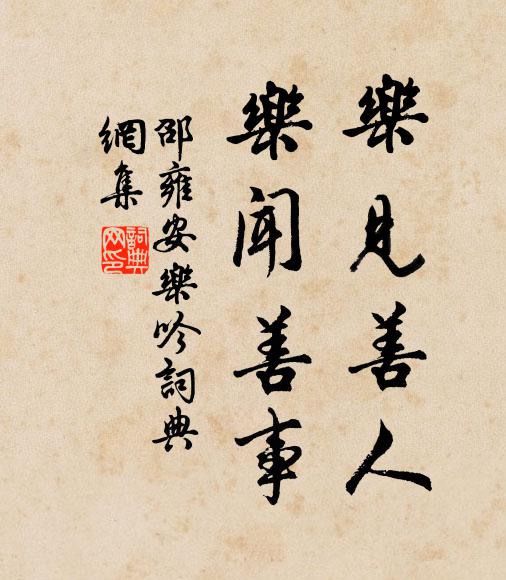 樂見善人
樂聞善事
邵雍安樂吟詞典
網集
詞典網印